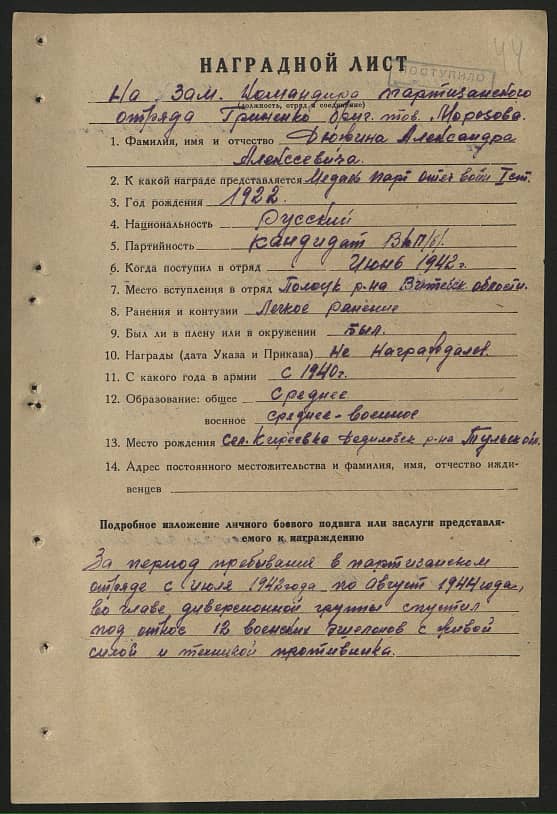 44
ПОСТУПИЛО
НАГРАДНОЙ ЛИСТ
На зам. командира партизанского
(должность, отряд и соединение)
отряда Гриненко бриг. тов. Морозова.
1. Фамилия, имя и отчество Дюкина Александра
Алексеевича.
2. К какой награде представляется Медаль парт отеч войн I ст.
3. Год рождения 1922.
4. Национальность Русский
5. Партийность Кандидат ВКП/б/.
6. Когда поступил в отряд Июнь 1942 г.
7. Место вступления в отряд Полоцк р-на Витебск области.
8. Ранения и контузии Легкое ранение
9. Был ли в плену или в окружении Был.
10. Награды (дата Указа и Приказа) Не награждался
11. С какого года в армии с 1940 г.
12. Образование: общее Среднее
военное Средне-военное
13. Место рождения Сел. Киреевка Дедиловск р-на Тульской.
14. Адрес постоянного местожительства и фамилия, имя, отчество ижди-
венцев
Подробное изложение личного боевого подвига или заслуги представля-
емого к награждению
За период пребывания в партизанском
отряде с июля 1942 года по Август 1944 года,
во главе диверсионной группы спустил
под откос 12 военских эшелонов с живой
силой и техникой противника.